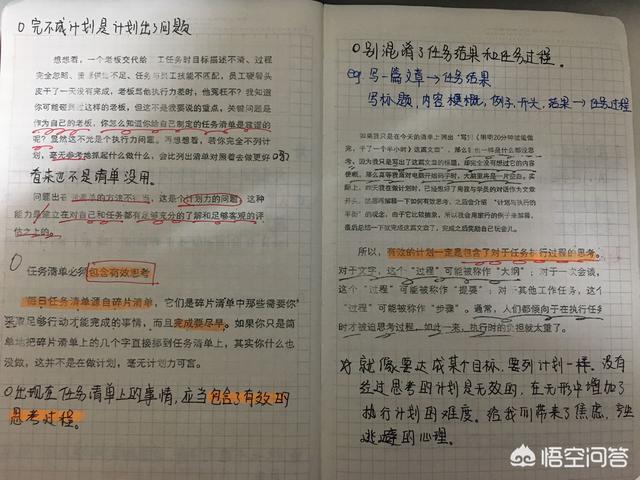 O 完不成计划是计划出了问题
想想看，一个老板交代给 工任务时目标描述不清、过程
完全忽略、资源供给不足、任务与员工技能不匹配，员工硬着头
皮干了一天没有完成，老板骂他执行力差时，他冤枉不？我知道
你可能碰到过这样的老板，但这不是我要说的重点，关键问题是
作为自己的老板，你怎么知道你给自己制定的任务清单是靠谱的
呢？显然这不光是个执行力问题。再想想看，若你完全不列计
划，毫无参考地抓起什么做什么，会比列出清单对照着去做更好
看来也不是清单没用。
问题出在 清单的方法 ，这是个计划力的问题，这种
能力是建立在对自己和任务都有足够充分的了解和足够客观的评
估之上的。
O 任务清单必须包含有效思考
每日任务清单源自碎片清单，它们是碎片清单中那些需要你
采取足够行动才能完成的事情，而且完成要尽早。如果你只是简
单地把碎片清单上的几个字直接挪到任务清单上，其实你什么也
没做，这并不是在做计划，毫无计划力可言。
O 出现在任务清单上的事情，应当包含了有效的
思考过程。
O 别混淆了任务结果和任务过程。
eg 写一篇文章→任务结果
写标题，内容梗概，例子，开头，结果→任务过程
如果我只是在今天的清单上列出“写《 20分钟就能做
完，干了一个半小时》这篇文章”，那么 也一样是什么都没思
考，因为我只是写出了这篇文章的标题，却完全没有想过它的内容
梗概，那么真等我面对电脑开始码字时，大脑里将是一片空白。实
际上，四天我在做计划时，已经想好了用我与学员的对话作为文章
开头，然后再解释一下如何有效思考，之后会介绍“计划与执行的
平衡”的观念，由于它比较抽象，所以我会用旅行的例子来解释，
最后总结一下就完成这篇文章了，完成之后奖励自己玩会儿。
所以，有效的计划一定是包含了对于任务执行过程的思考。
对于文字，这个“过程”可能被称作“大纲”；对于一次会谈，
这个“过程”可能被称作“提要”，对一其他工作任务，这个
“过程”可能被称作“步骤”。通常，人们都倾向于在执行任务
时才被迫思考过程，如此一来，执行时的负担就太重了。
就像要达成某个目标，要列计划一样。没有
经过思考的计划是无效的，在无形中增加了
执行计划的难度。给我们带来了焦虑，
逃避的心理。
悟空问答